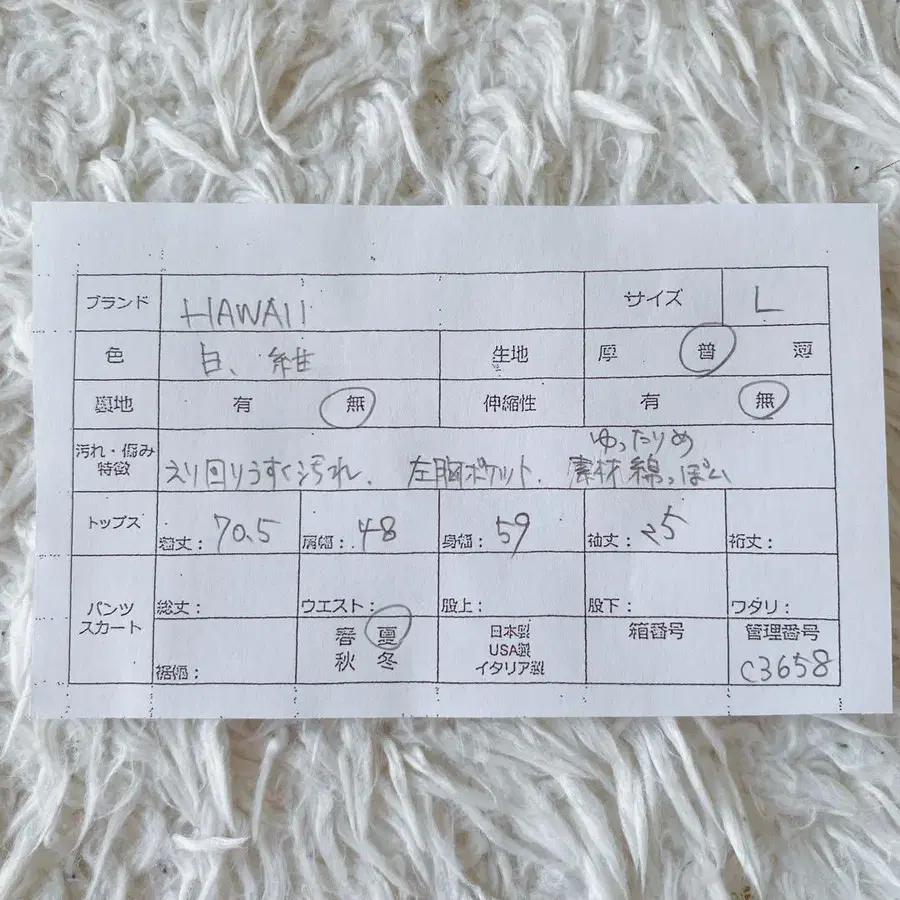 ブランド HAWAII サイズ L
色 白、紺 生地 厚 普 薄
裏地 有 無 伸縮性 有 無
汚れ・傷み
特徴
ゆったりめ
えり回りうすく汚れ、左胸ポケット、素材綿っぽい
トップス 着丈：70.5 肩幅：48 身幅：59 袖丈：25 裄丈：
パンツ
スカート
総丈： ウエスト： 股上： 股下： ワタリ：
裾幅：
春 夏
秋 冬
日本製
USA製
イタリア製
箱番号
管理番号
C3658